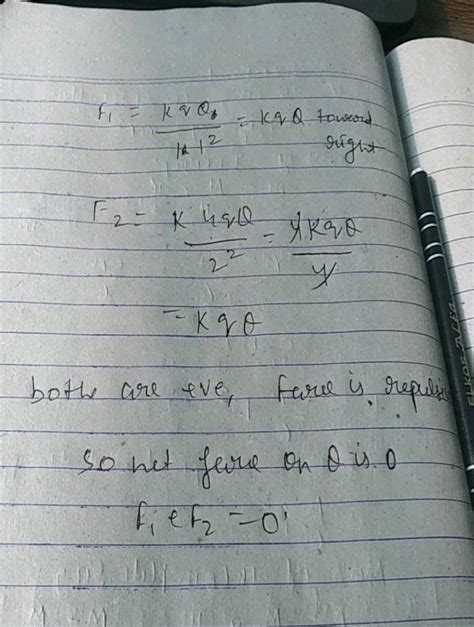 F₁ = K q Q / 1² = K q Q toward
right
F₂ = K 4qQ / 2² = 4KqQ / 4
= K q Q
both are +ve, Force is repulsi
so net force on Q is 0
F₁ + F₂ = 0